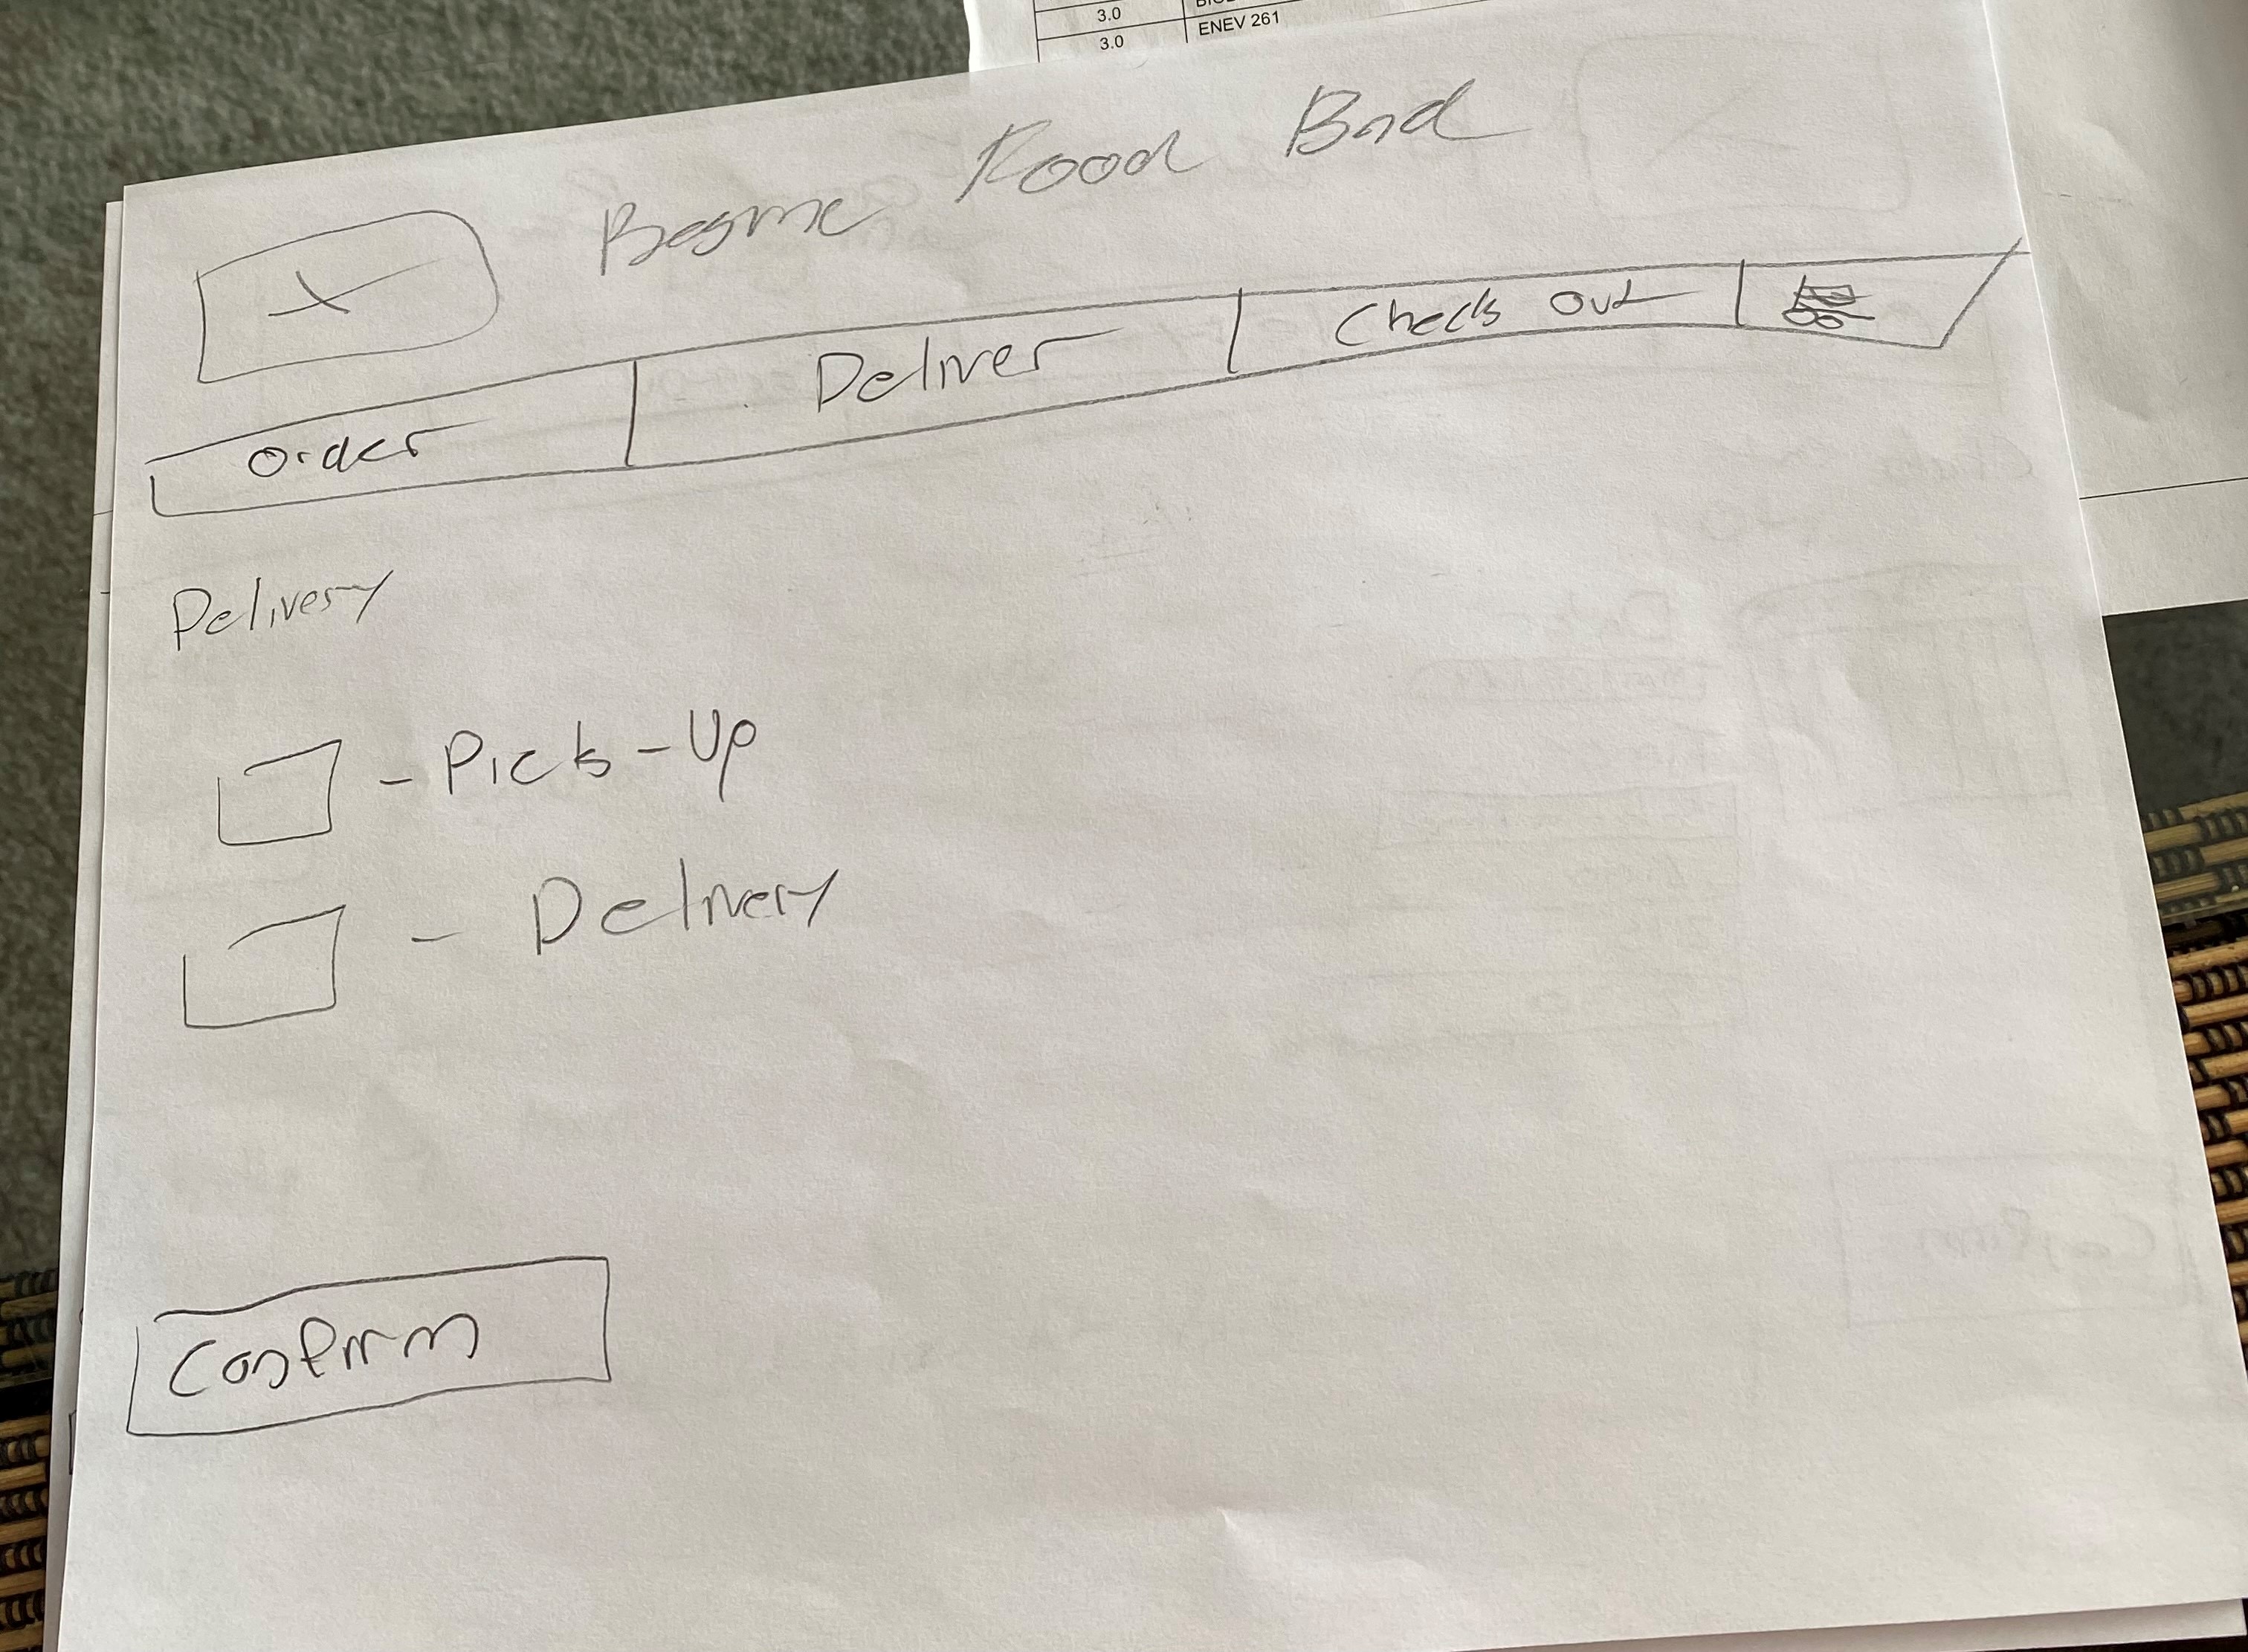 3.0
3.0 ENEV 261
Food
Order
Deliver
Check Out
Delivery
- Pick-Up
- Delivery
Confirm